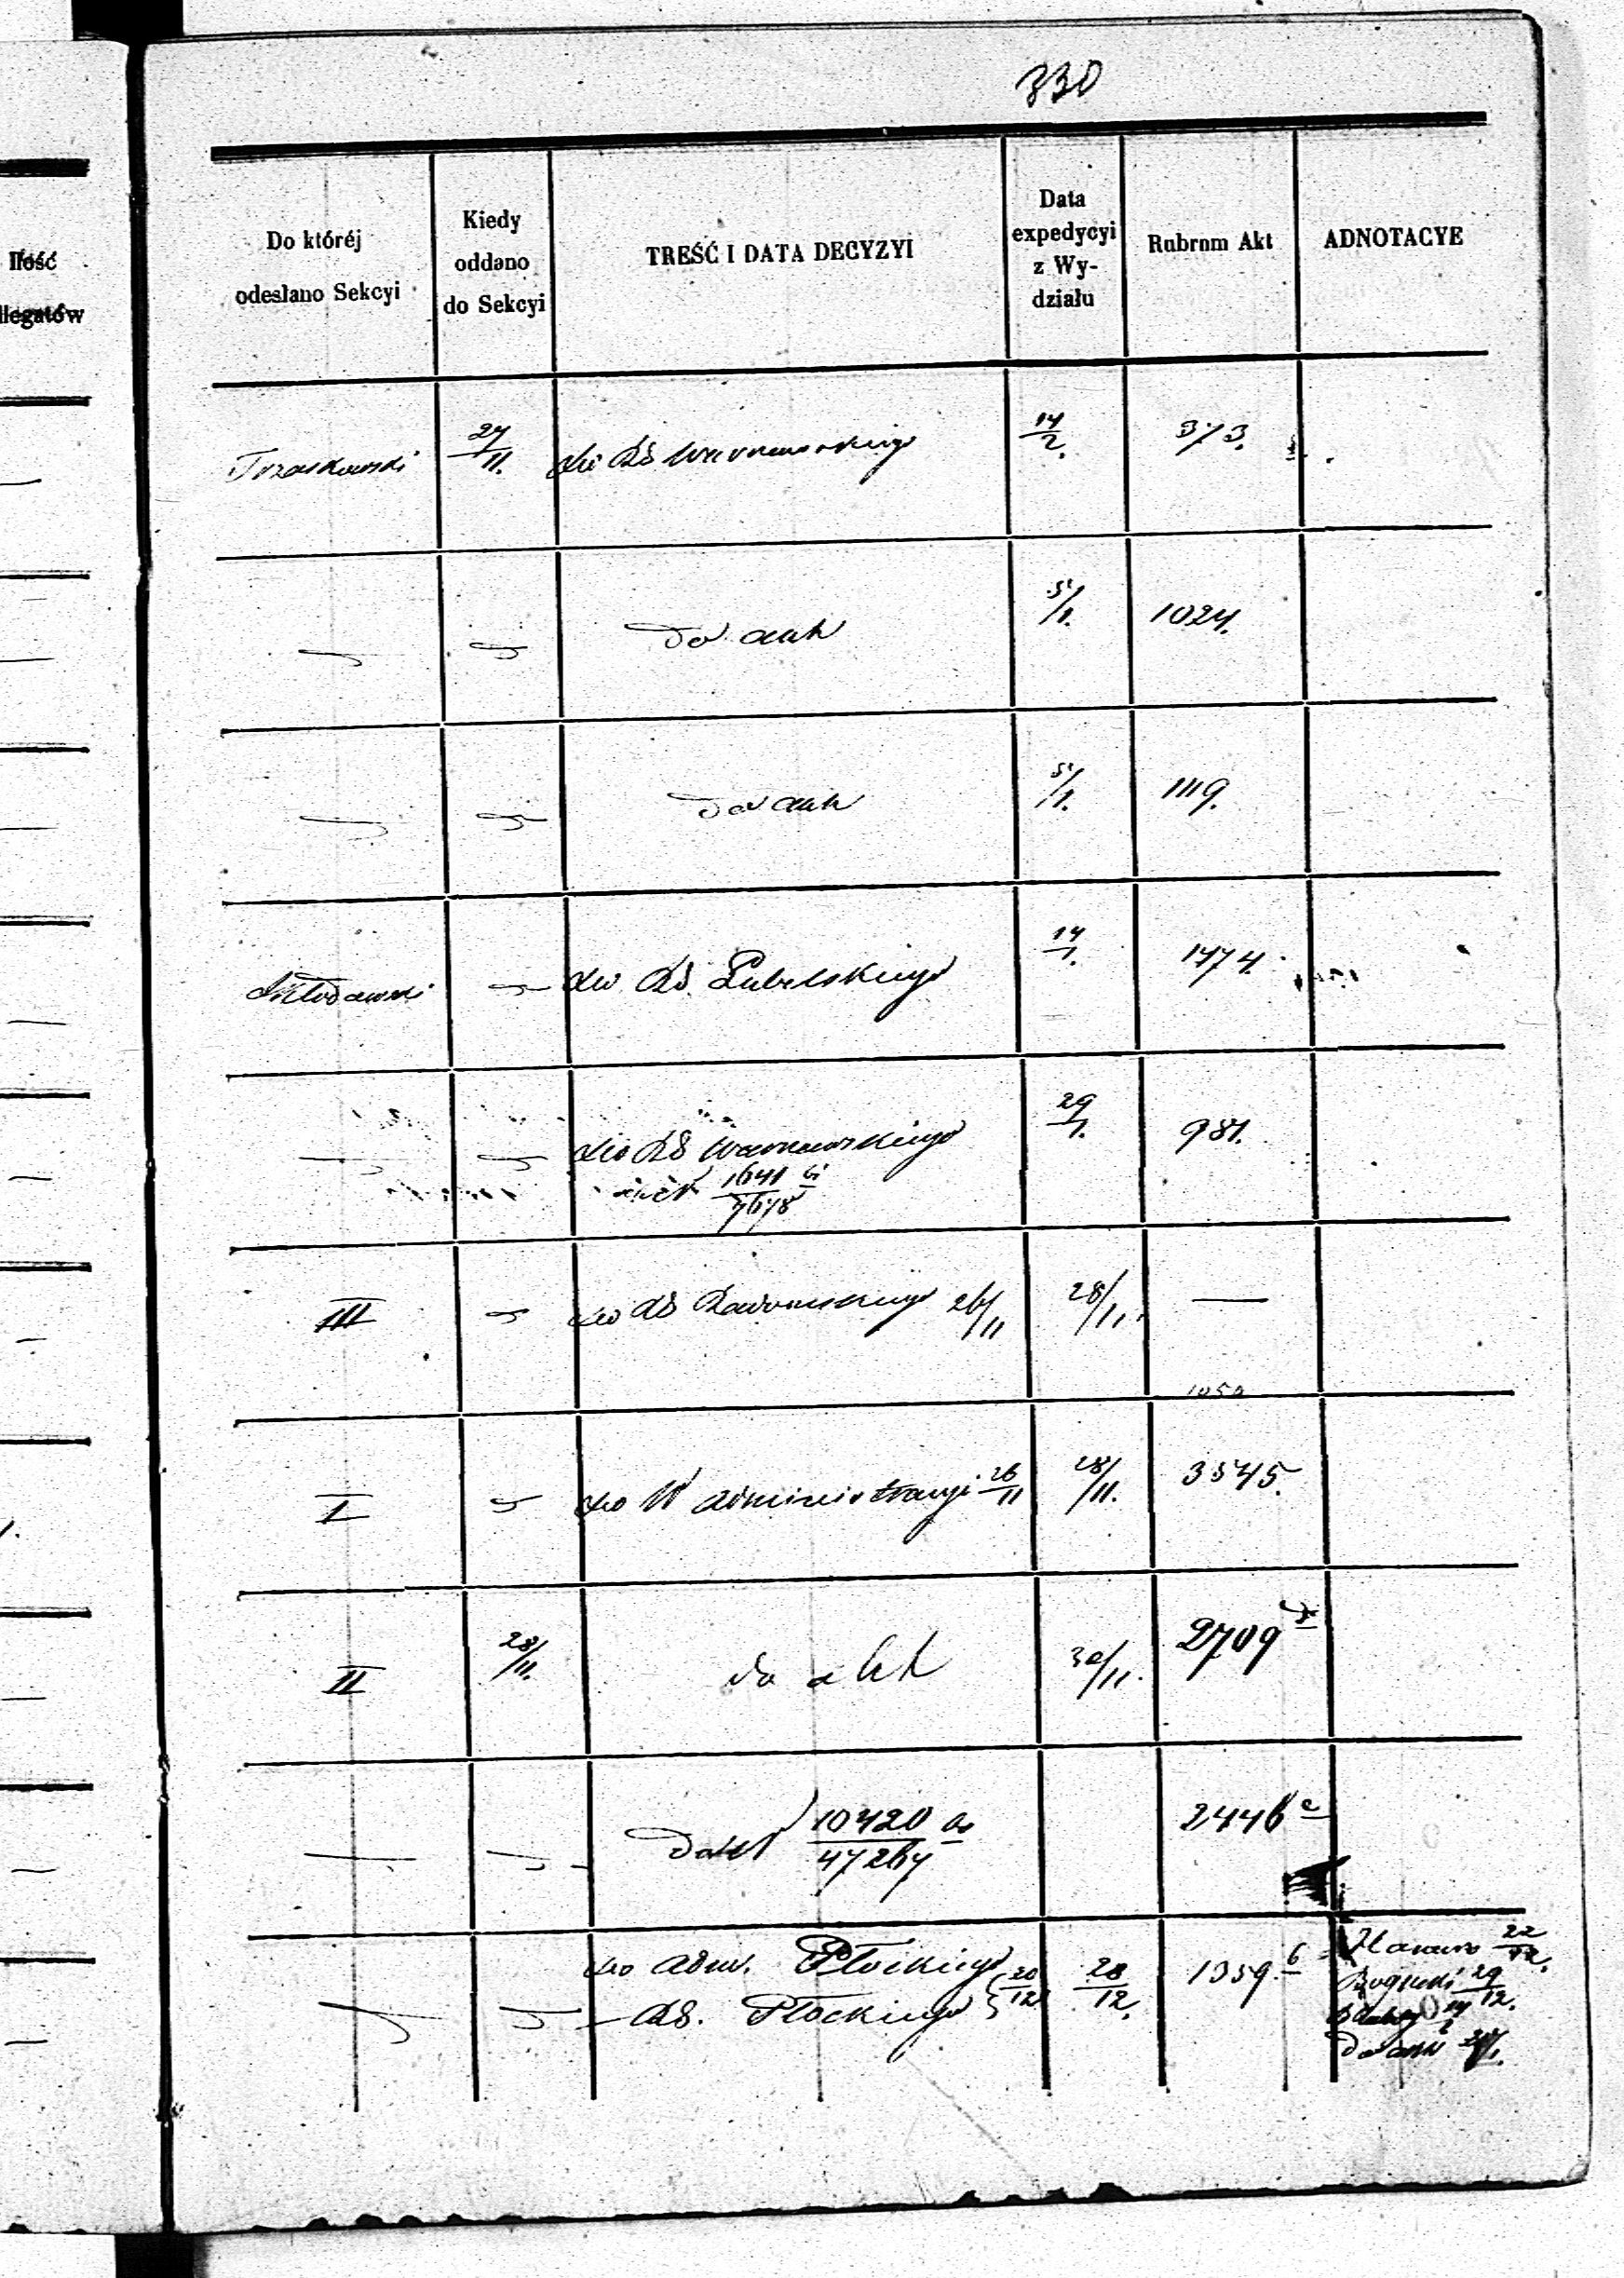 330
Ilość
llegatów
Do któréj
odesłano Sekcyi
Kiedy
oddano
do Sekcyi
TREŚĆ I DATA DECYZYI
Data
expedycyi
z Wy-
działu
Rubrum Akt
ADNOTACYE
Trzaskowski 27/11. do RS Warszawskiego 14/2. 373.
do akt 5/1. 1024.
do akt 5/1. 1119.
do RS Lubelskiego 14/1. 1474.
do RS Warszawskiego 29/1. 981.
1641/7678
III do RS Radomskiego 26/11 28/11.
1050
I do W Administracyi 26/11 28/11. 3545.
II 28/11. do akt 30/11. 2709
10420/47264 2446 c
do Adm. Płockiego 20/12 28/12. 1359. 6 22/12.
RS. Płockiego 29/12.
do akt